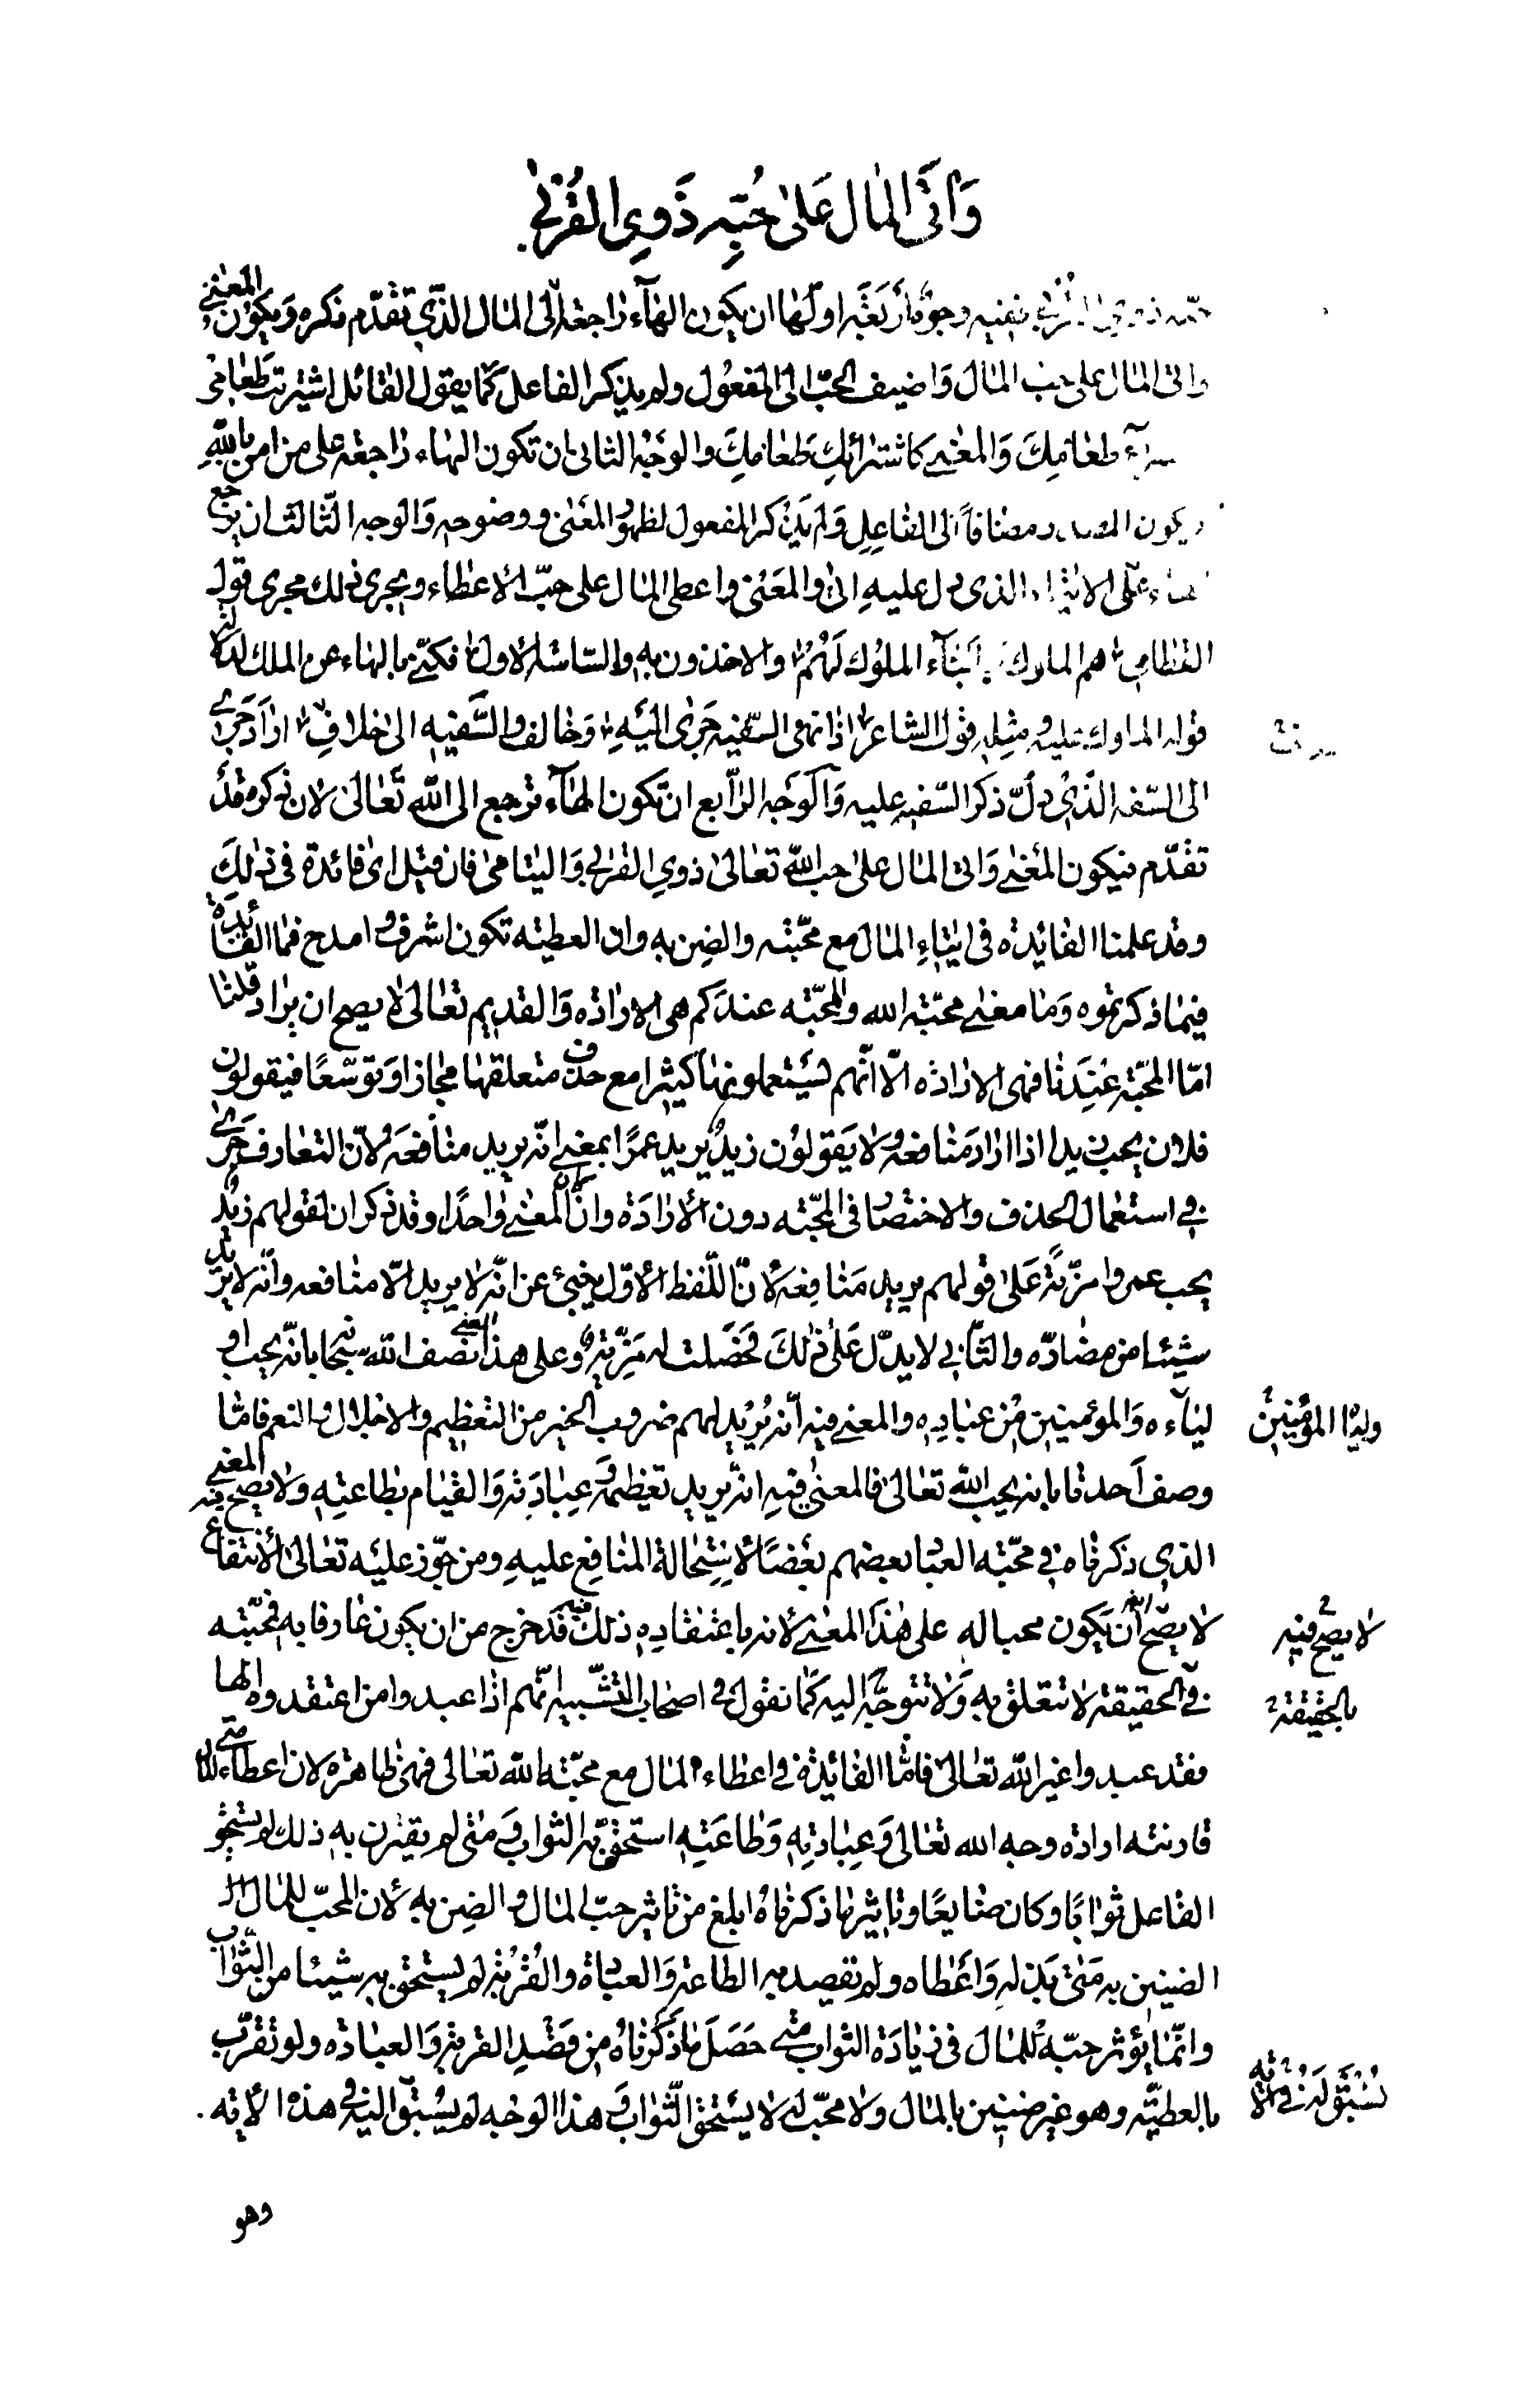 وَآتَى المٰال عَلىٰ حُبِّهِ ذَوِي القُرْبىٰ.
حبّه ذوي القُربى ففيه وجوهٌ أرْبَعَة اولّها ان يكون الهٰآء رٰاجعة الى المٰال الذّي تقدّم ذكره وَيكوُن المعنىٰ
واتى المٰال على حبّ المٰال وَاضيف الحبّ الى المفعُول ولم يذكر الفاعل كمٰا يقول القٰائل اشتريت طَعٰامى
كشرآء طعٰامِكَ وَالمعنىٰ كاشترٰائك طَعٰامكَ والوَجْه الثانى ان تكون الهٰاء رٰاجعة على من امن باللّهِ
ويكون المصدر مصنٰافاً الى الفٰاعِلِ وَلم يَذْكر المفعول لظهوُر المعَنى ووضوحه وَالوجه الثّالث ان يرجع
الهاء على الايتاء الذى دل عليهِ اتىٰ والمعَنى واعطى المٰال على حبّ الاعطٰاء ويجرى ذلك مجرى قول
القطامى هم الملوك وابنٰآء الملوُك لَهُمْ والاخذون به والسّاسَة الاولٰ فكنّى بالهٰاء عن الملك لدلالة
قوله الملوك عليه ومثِله قول الشاعر اذٰا نهى السّفيه جَرٰى اليَهِ وَخٰالف والسَّفيه الىٰ خلافِ ارٰادَ جَرىٰ
الى السّفه الذّي دلّ ذكر السّفيه عليه وَالوَجه الرّابع ان تكون الهٰآء ترجع الى اللّه تَعٰالىٰ لان ذكره قدْ
تقدّم فيكون المعَنىٰ وَاتى المٰال علىٰ حب اللّه تعٰالىٰ ذوي القربىٰ وَاليتٰامىٰ فان قيل اىٰ فائدة فى ذٰلكَ
وقد علمنا الفٰائدة فى ايتٰاءِ المٰال مع محّبته والضِن به وان العطيته تكون اشرف و امدح فمٰا الفٰائدَة
فيمٰا ذكرتموه وَمٰا معنىٰ محبّة الله والمحبّته عندكم هى الارٰادة وَالقديم تعٰالىٰ لا يصح ان يرٰاد قلنٰا
امّا المحبّة عنِدَنٰا فهى الارٰادة الّا انّهم يَستعملونهٰا كثيرا مع حذف متعلقهٰا مجٰازا وَتوَسّعًا فيقولون
فلان يحب زيدا اذا ارٰاد مَنٰافعه وَلا يَقولوُن زيدٌ يريد عمرًا بمعنىٰ انّه يريد منٰافعَه ولانّ التعٰارف جَرىٰ
في استعمٰال الحذف والاختصٰار فى المحبّته دون الارٰادَة وانّ المعنىٰ وٰاحدًا وقد ذكر ان لقولهم زيدٌ
يحب عمروا مزّيّةً عَلىٰ قولهم يريد مَنٰافِعَهُ لانّ اللّفظ الاوّل ينبئ عن انّه لا يريد الّا منٰافعه وانّه لا يريد
شيئا من مضٰادّه والثّاني لا يدّل عَلىٰ ذٰلكَ فحَصَلت له مَزِّيّة وعلى هذا المعنىٰ نصف اللّه سبحٰا بانّه يحب او
ليٰآءه وَالموُمنينَ مِنْ عبٰادِه والمعنىٰ فيه أنّه يُرْيد لهم ضروب الخير من التعظيم والاجلال والنعم فامّا
ولِيّا المؤمنِينْ
وصف اَحدنا بانه يحب اللّه تعٰالىٰ فالمعنىٰ فيهِ انه يريد تعَظيمه وَعبِٰادَته وَالقيٰام بطٰاعتِه وَلا يصح فيه المعنىٰ
الذي ذكرنٰاه في محبّته العبٰاد بعضهم بعَضًا لاستِحٰالة المنٰافِع عليهِ ومن جوّز علَيه تعٰالىٰ الانتفٰاع
لا يصّح اَنْ يَكون محبا له على هٰذا المعَنىٰ لانه باعتقٰادِه ذلك فيه قدَ خرج من ان يكون عٰارفا به فمحبّته
لا يصحّ فيه
في الحقيقة لا تتعلق به وَلا تتوجّه اليه كمٰا نقول فى اصحٰاب التشّبيه انّهم اذٰا عبدوا من اعتقدوه الهٰا
بالحقيقة
فقد عبدوا غير اللّه تعٰالىٰ فامّا الفٰائدة في اعطٰاء المٰال مع محبّته اللّه تعٰالى فهى ظٰاهرة لان اعطٰاء المٰال متى
قارنته ارادة وجه الله تعٰالى وَعبِٰادتِه وَطٰاعَتِه استحق به الثواب وَمتٰى لم يقترن به ذلك لم يستحق
الفٰاعل ثوٰابًا وكان ضٰايعًا وتٰاثير مٰا ذكرنٰاه ابلغ من تٰاثير حبّ المٰال والضِن به لان المحبّ للمٰال
الضنين به مَتى بَذلهِ وَاعَطاه ولم يقصد به الطاعة وَالعبٰادة والقُرْبة لم يستحق به شيئا من الثّوٰاب
وانّمٰا يؤثر حبّه للمٰال فى زيٰادَة الثواب متىٰ حَصَلَ مٰا ذَكرنٰاهُ مِن قَصْدِ القربة وَالعبٰادة ولو تقرّب
بالعطيّه وهو غير ضنين بالمٰال وَلا محبّ له لا يستحق الثّوٰاب وَ هذا الوَجْه لم يُسْبَق اليه فى هذه الاية.
نُسْبَق لَهُ فِى الآيه
وهو